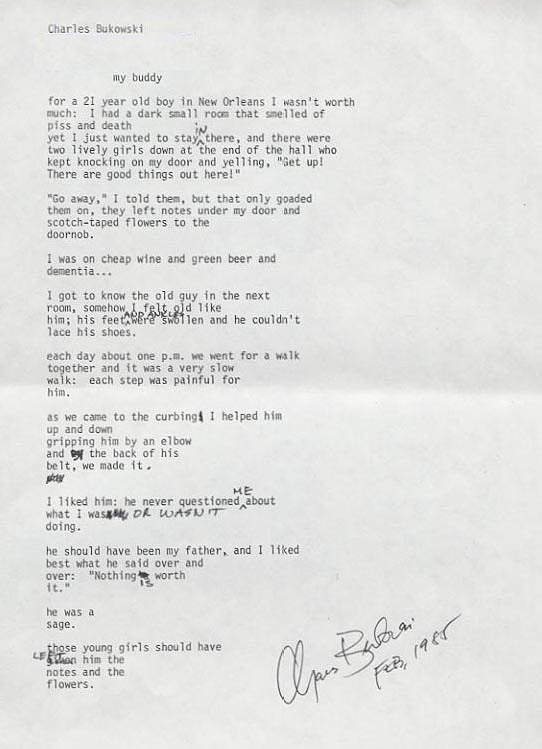 Charles Bukowski
my buddy
for a 21 year old boy in New Orleans I wasn't worth
much: I had a dark small room that smelled of
piss and death
yet I just wanted to stay IN there, and there were
two lively girls down at the end of the hall who
kept knocking on my door and yelling, "Get up!
There are good things out here!"
"Go away," I told them, but that only goaded
them on, they left notes under my door and
scotch-taped flowers to the
doornob.
I was on cheap wine and green beer and
dementia...
I got to know the old guy in the next
room, somehow I felt old like
him; his feet AND ANKLES were swollen and he couldn't
lace his shoes.
each day about one p.m. we went for a walk
together and it was a very slow
walk: each step was painful for
him.
as we came to the curbing I helped him
up and down
gripping him by an elbow
and the back of his
belt, we made it.
I liked him: he never questioned ME about
what I was OR WASN'T
doing.
he should have been my father, and I liked
best what he said over and
over: "Nothing IS worth
it."
he was a
sage.
those young girls should have
LEFT him the
notes and the
flowers.
Charles Bukowski
Feb, 1985